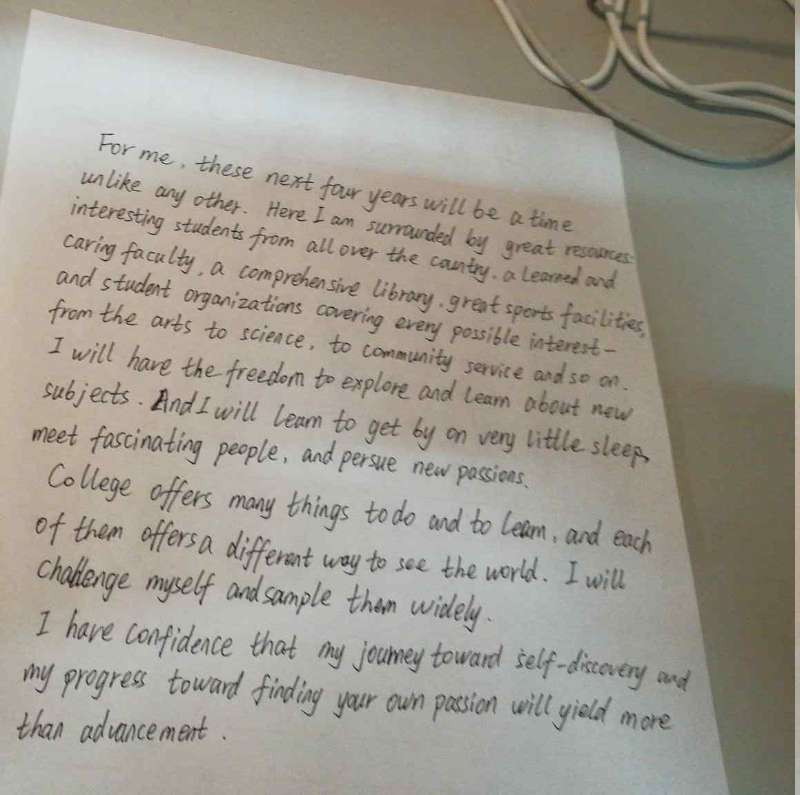 For me, these next four years will be a time
unlike any other. Here I am surrounded by great resources:
interesting students from all over the country, a learned and
caring faculty, a comprehensive library, great sports facilities,
and student organizations covering every possible interest-
from the arts to science, to community service and so on.
I will have the freedom to explore and learn about new
subjects. And I will learn to get by on very little sleep,
meet fascinating people, and persue new passions.
College offers many things to do and to learn, and each
of them offers a different way to see the world. I will
challenge myself and sample them widely.
I have confidence that my journey toward self-discovery and
my progress toward finding your own passion will yield more
than advancement.